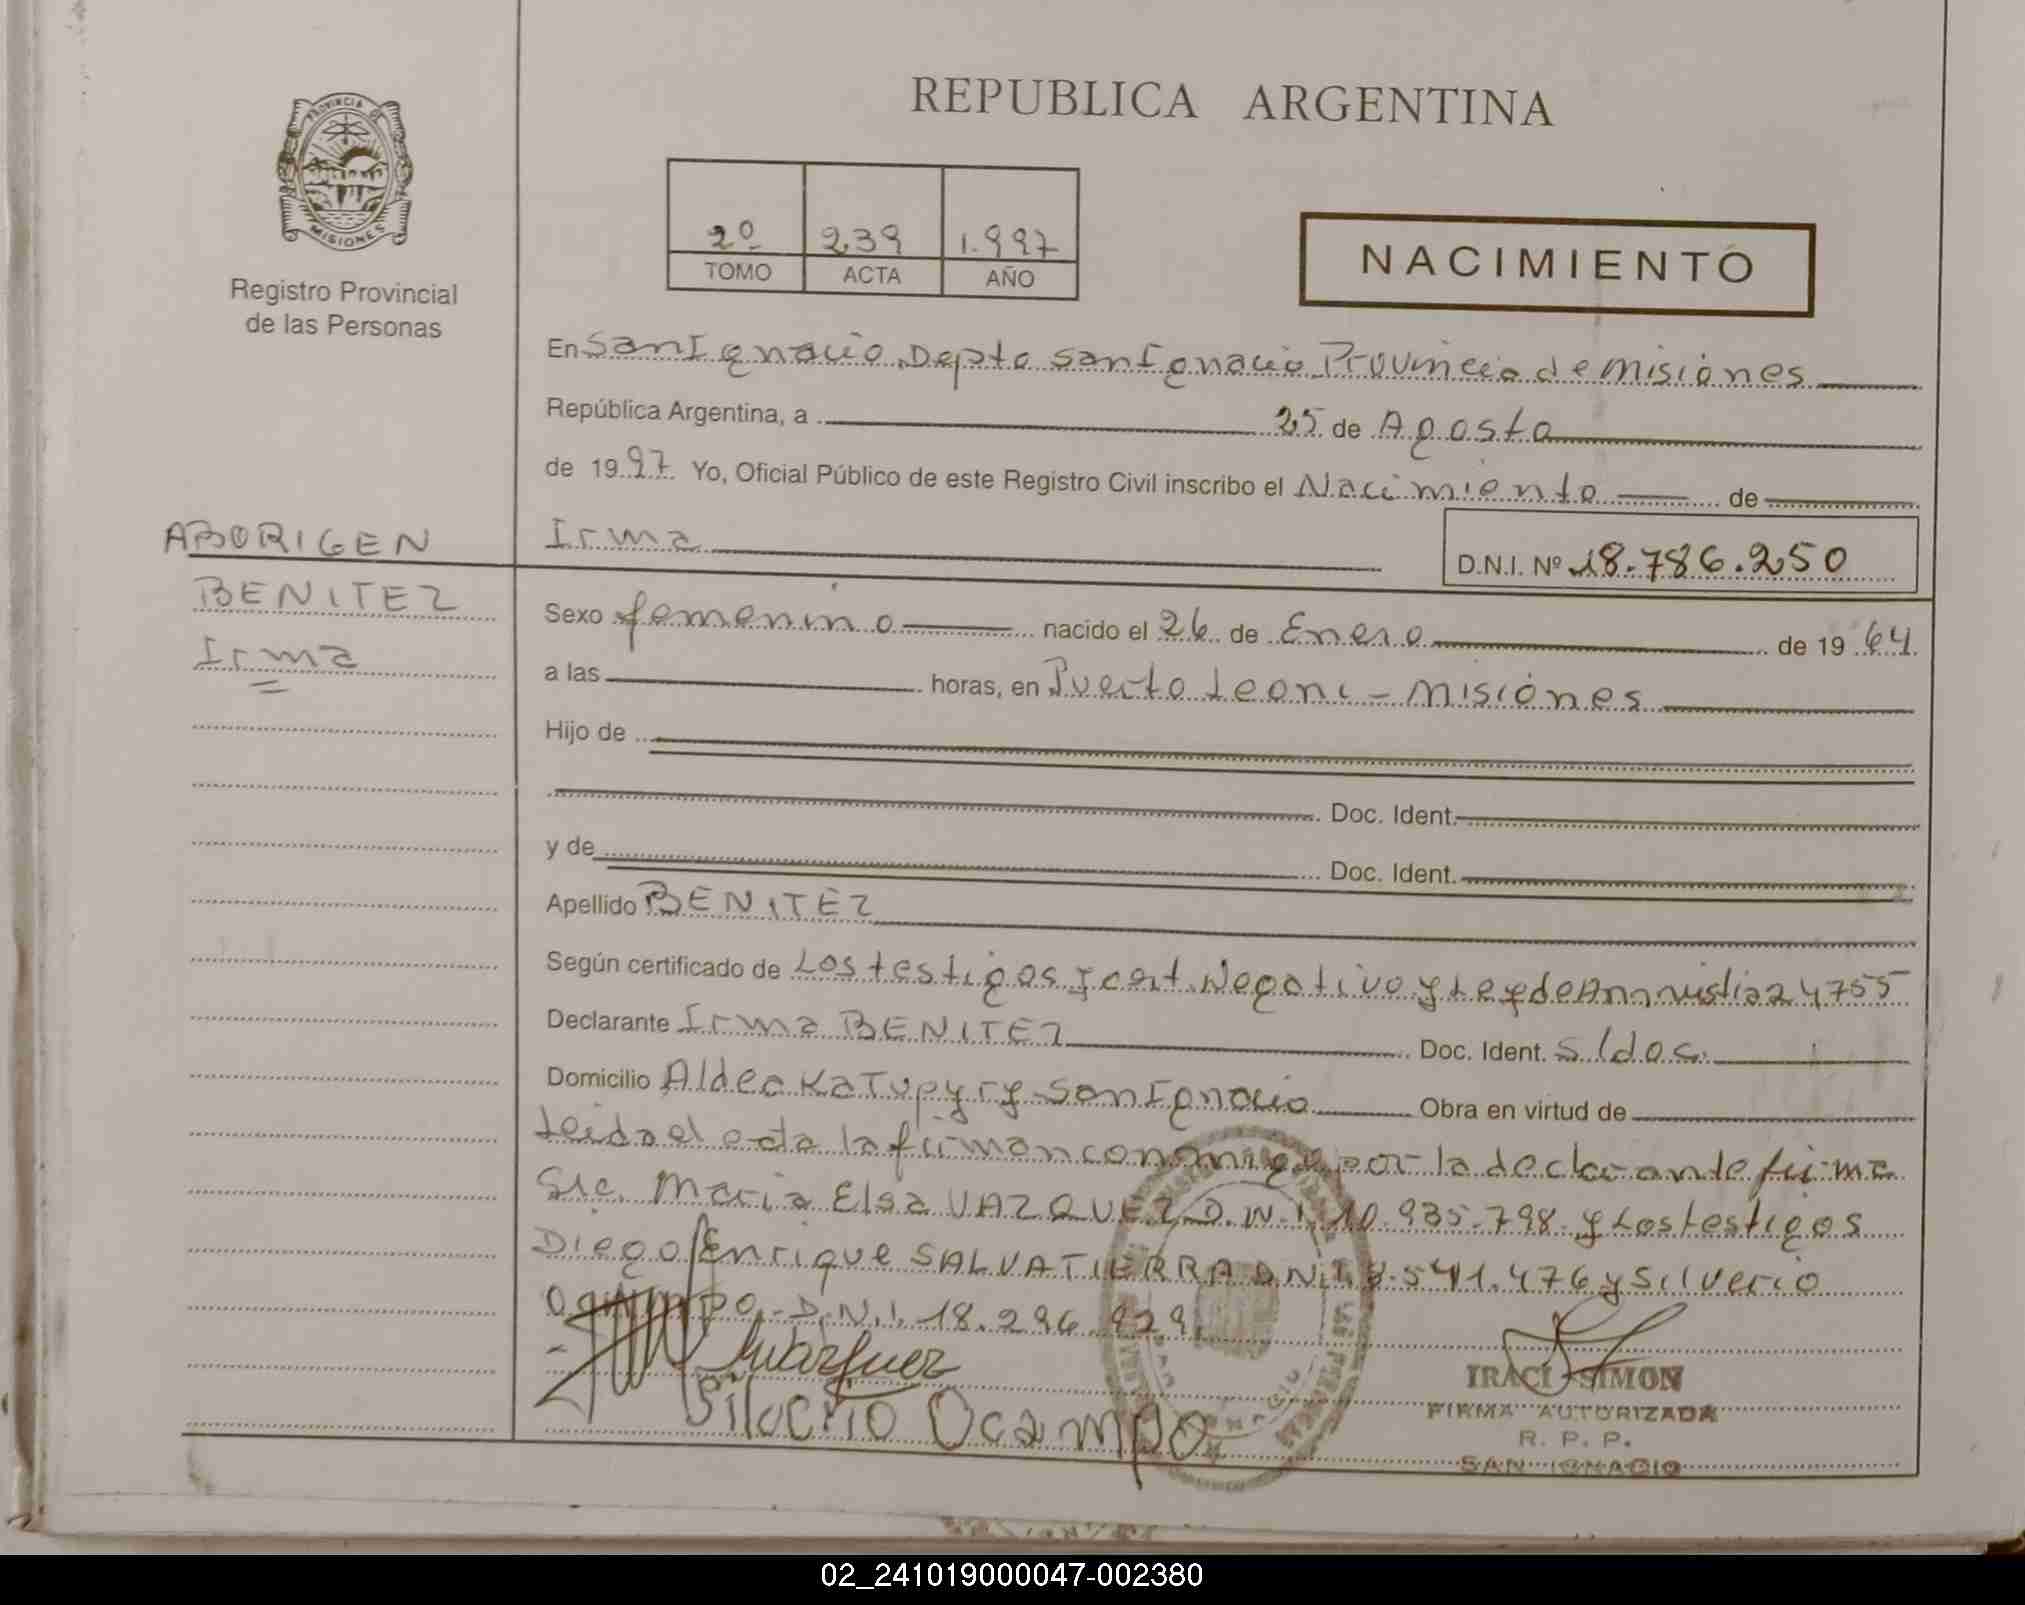 REPUBLICA ARGENTINA
PROVINCIA DE
MISIONES
Registro Provincial
de las Personas
2º 239 1.997
TOMO ACTA AÑO
NACIMIENTO
En San Ignacio Depto San Ignacio Provincia de Misiones
República Argentina, a 25 de Agosto
de 1997 Yo, Oficial Público de este Registro Civil inscribo el Nacimiento de
ABORIGEN
BENITEZ
Irma
Irma
D.N.I. Nº 18.786.250
Sexo femenino nacido el 26 de Enero de 1964
a las horas, en Puerto Leoni - Misiones
Hijo de
Doc. Ident.
y de Doc. Ident.
Apellido BENITEZ
Según certificado de Los testigos y cert. Negativo y Ley de Amnistia 24755
Declarante Irma BENITEZ Doc. Ident. S/doc.
Domicilio Aldea Katupyry San Ignacio Obra en virtud de
Leida el acta la firman conmigo por la declarante firma
Sra. Maria Elsa VAZQUEZ D.N.I. 10.935.798 y Los testigos
Diego Enrique SALVATIERRA DNI. 8.541.476 y Silverio
Ocampo - D.N.I. 18.296.929
Silverio Ocampo
IRACI SIMON
FIRMA AUTORIZADA
R. P. P.
SAN IGNACIO
02_241019000047-002380